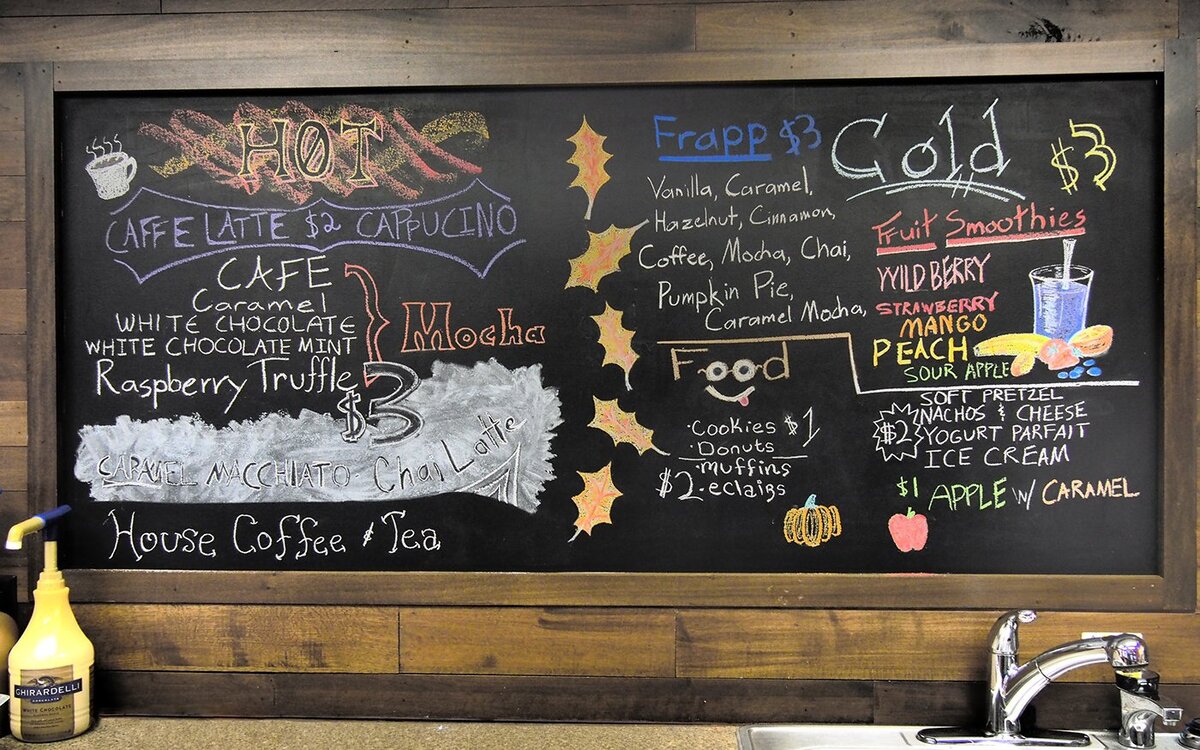 HOT
CAFFE LATTE $2 CAPPUCINO
CAFE
Caramel
WHITE CHOCOLATE
WHITE CHOCOLATE MINT
Raspberry Truffle
Mocha
$3
CARAMEL MACCHIATO Chai Latte
House Coffee & Tea
Frapp $3
Vanilla, Caramel,
Hazelnut, Cinnamon,
Coffee, Mocha, Chai,
Pumpkin Pie,
Caramel Mocha,
Cold $3
Fruit Smoothies
WILD BERRY
STRAWBERRY
MANGO
PEACH
SOUR APPLE
Food
·Cookies $1
·Donuts
·muffins
$2·eclairs
SOFT PRETZEL
NACHOS & CHEESE
$2 YOGURT PARFAIT
ICE CREAM
$1 APPLE w/ CARAMEL
GHIRARDELLI
CHOCOLATE
WHITE CHOCOLATE